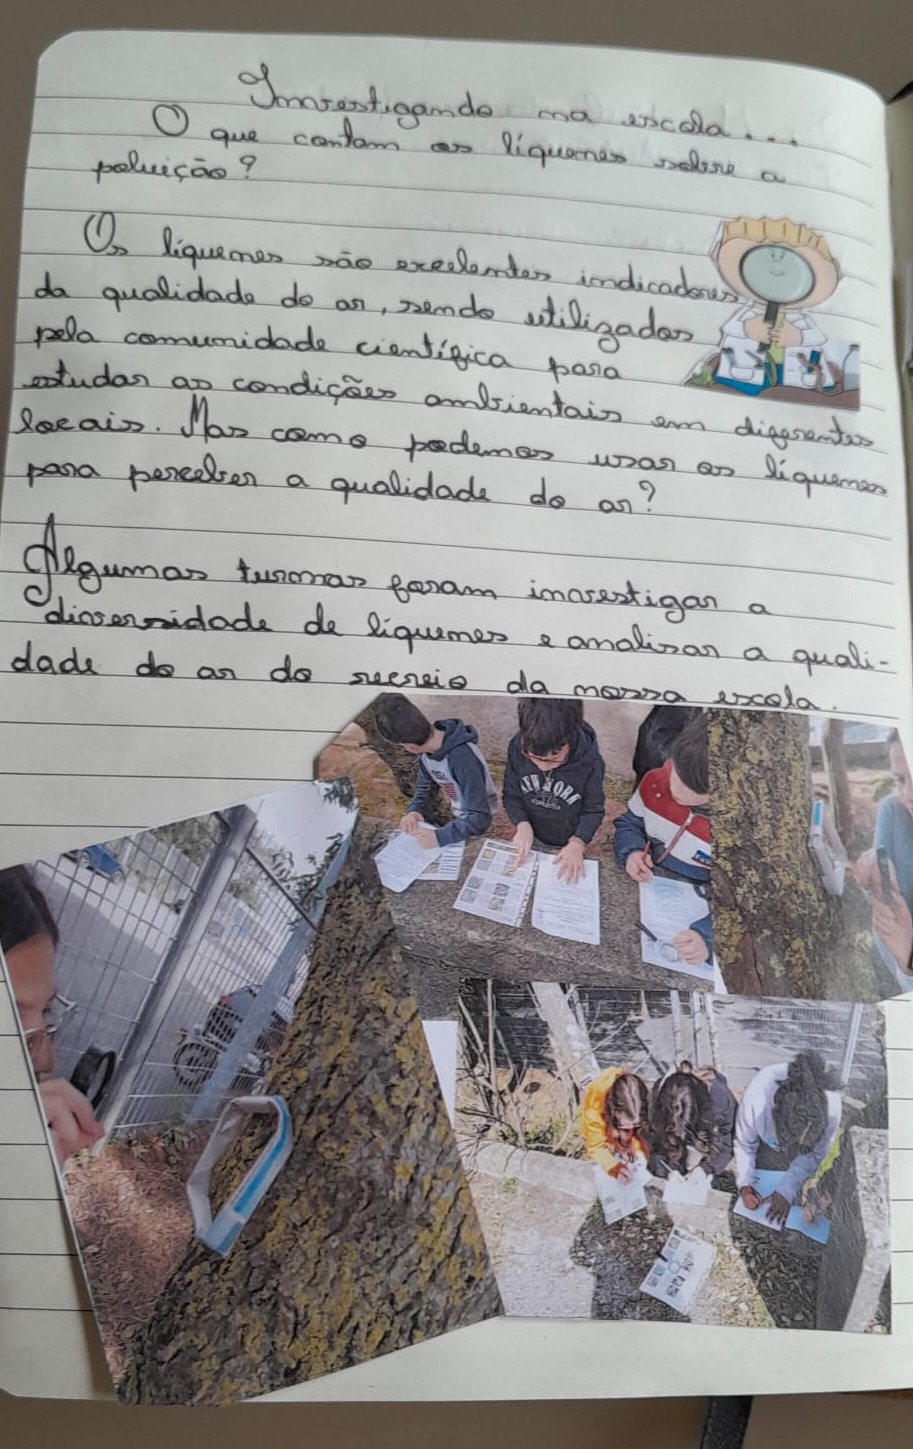 Investigando na escola...
O que contam os líquenes sobre a
poluição?
Os líquenes são excelentes indicadores
da qualidade do ar, sendo utilizados
pela comunidade científica para
estudar as condições ambientais em diferentes
locais. Mas como podemos usar os líquenes
para perceber a qualidade do ar?
Algumas turmas foram investigar a
diversidade de líquenes e analisar a quali-
dade do ar do recreio da nossa escola.
NEW YORK